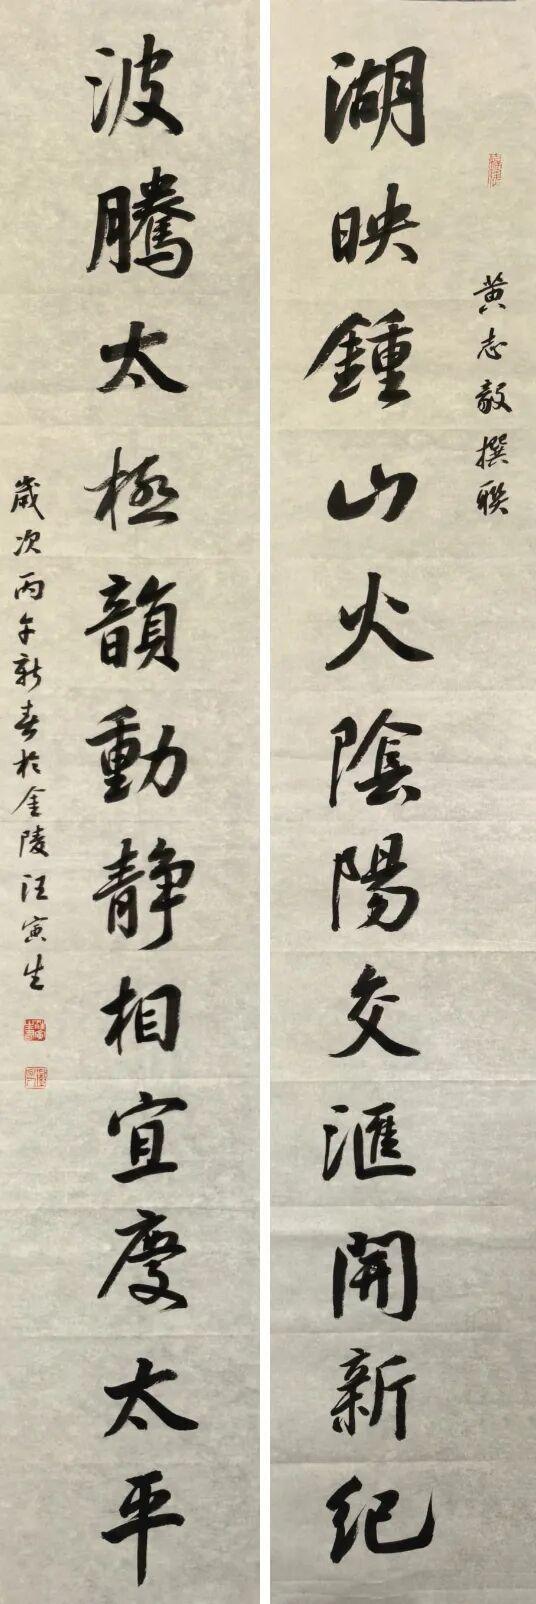 黄志毅撰聯
湖映鍾山火陰陽交滙開新纪
波騰太極韻動靜相宜慶太平
歲次丙午新春於金陵汪寅生